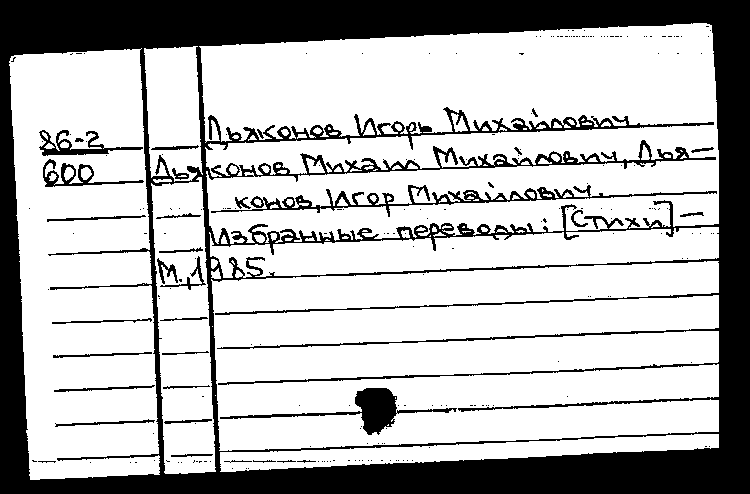 86-2
600
Дьяконов, Игорь Михайлович.
Дьяконов, Михаил Михайлович, Дья-
конов, Игор Михайлович.
Избранные переводы: [Стихи].-
М., 1985.